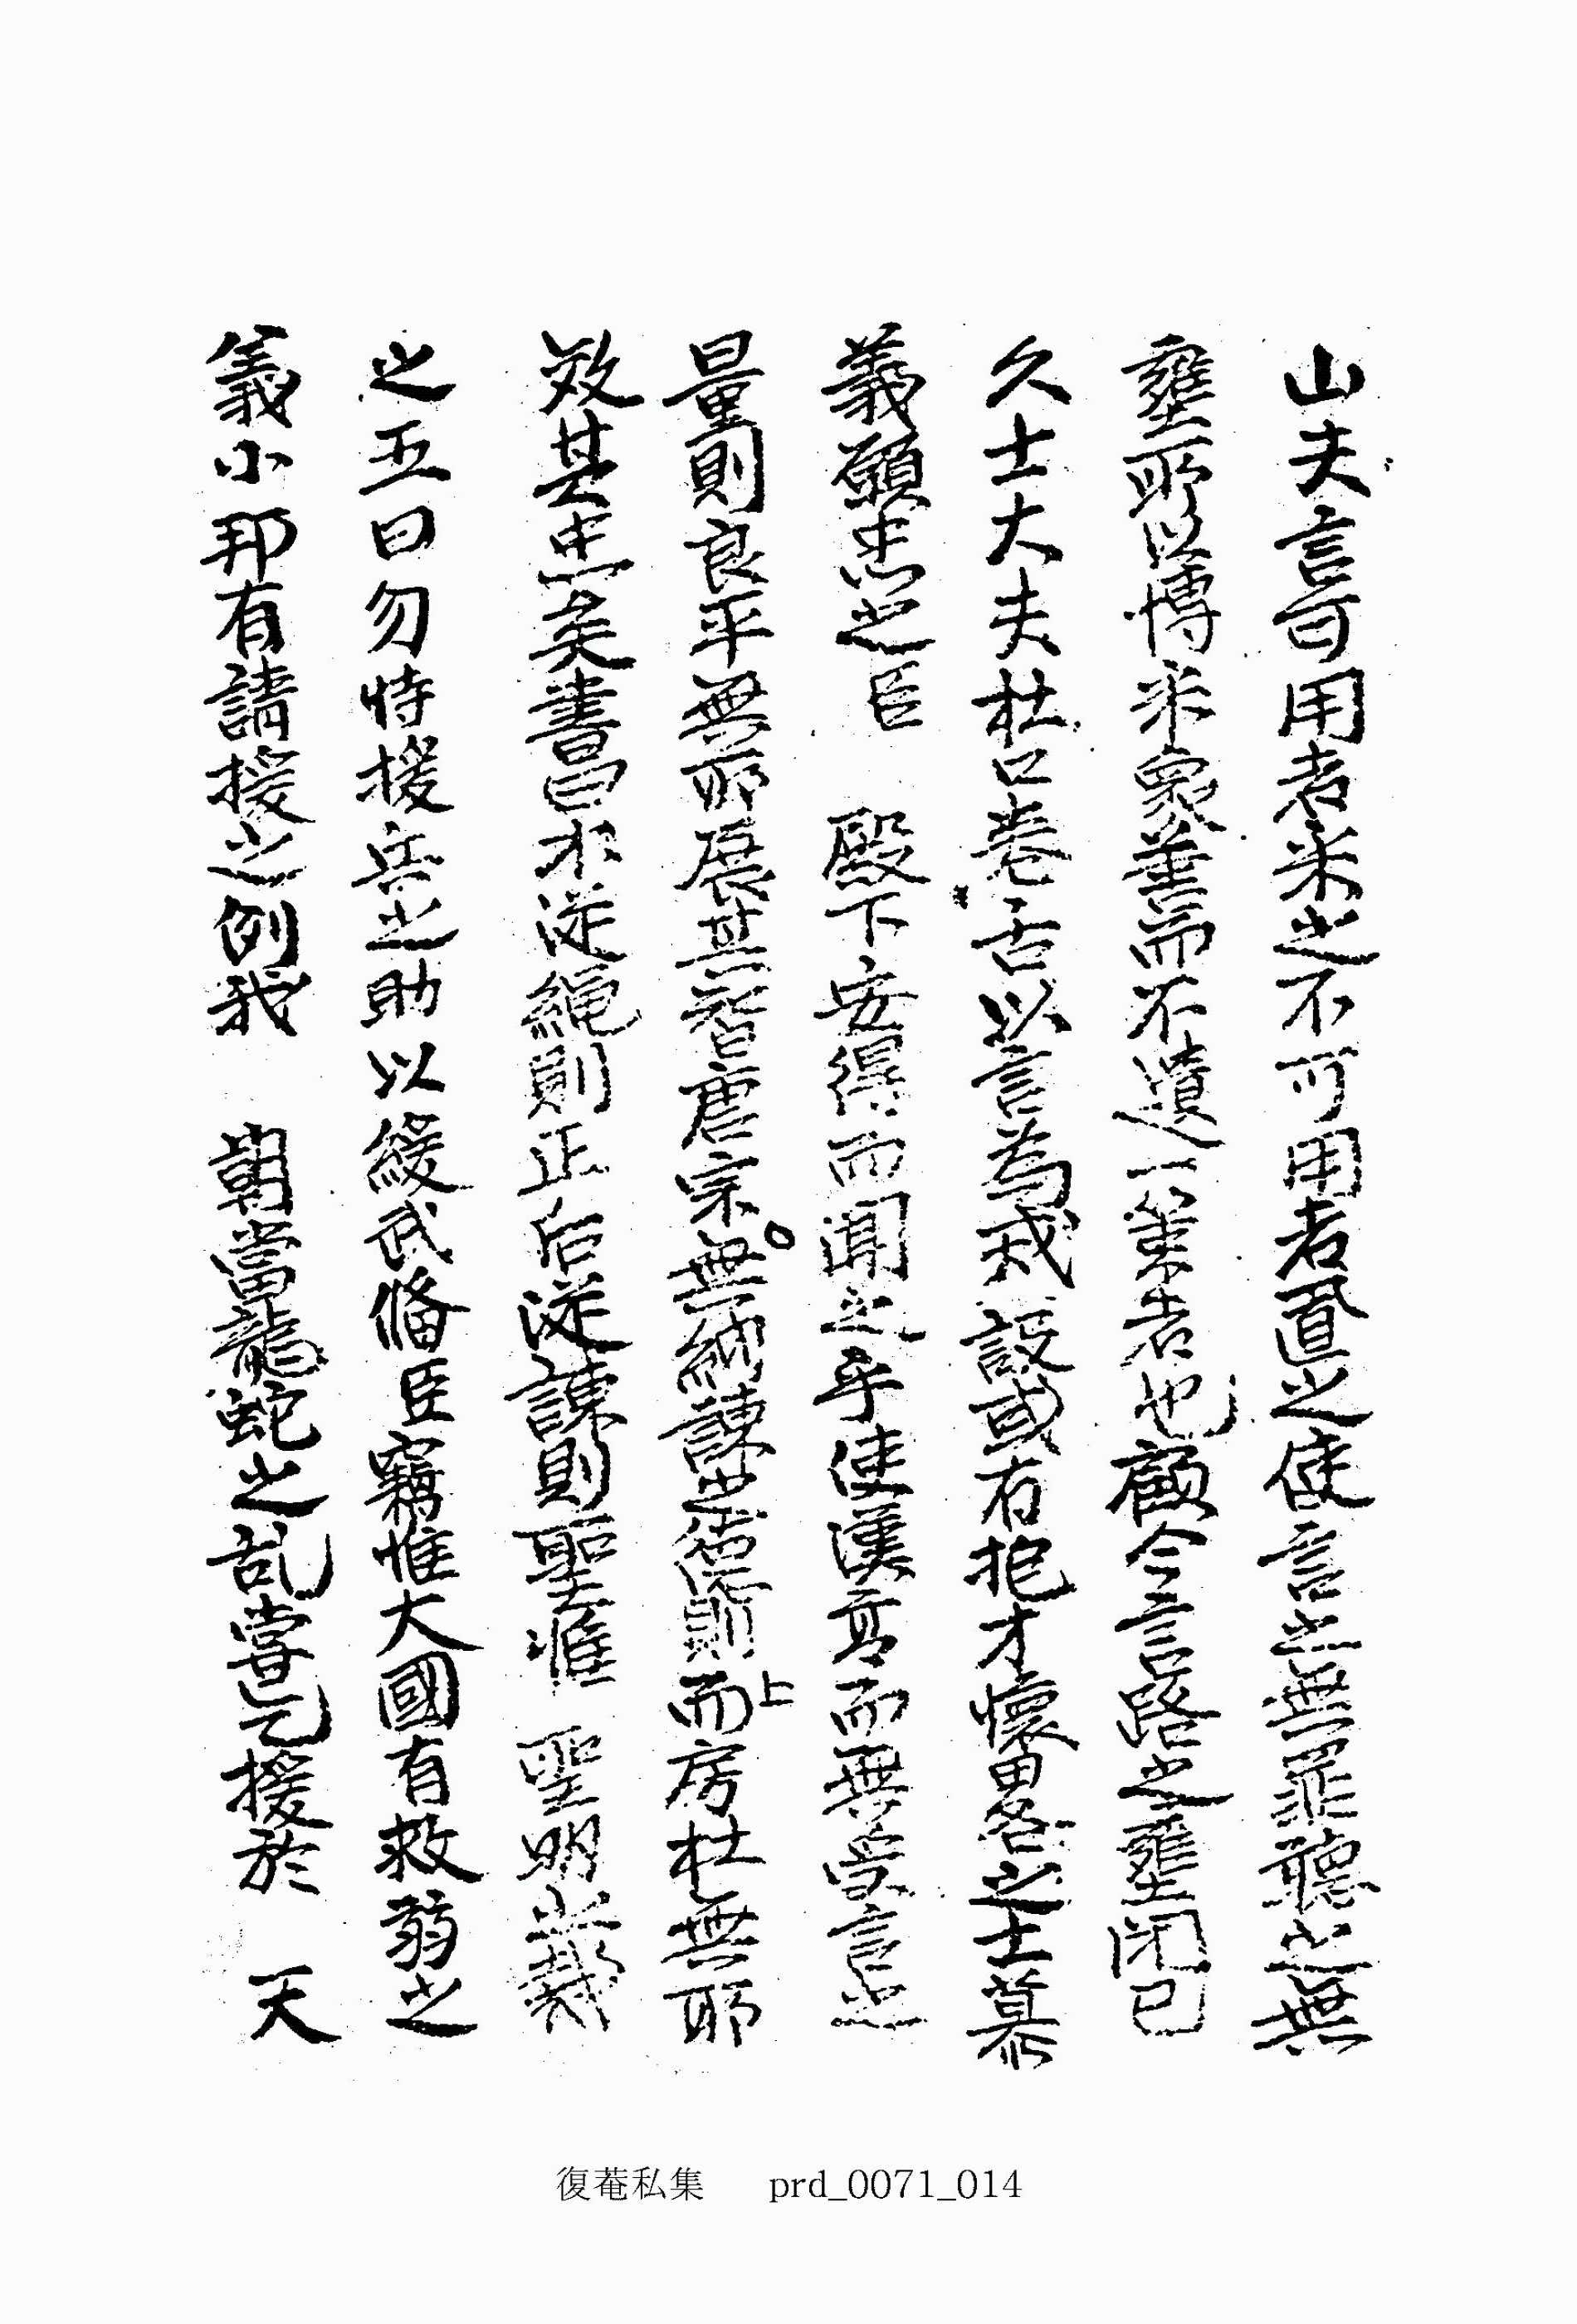 山夫言可用者采之不可用者置之使言之無罪聽之無
壅所以博采衆善而不遺一策者也顧今言路之壅閉已
久士大夫杜口卷舌以言爲戒設或有抱才懷畧之士慕
義願忠之臣 殿下安得而聞之乎使漢高而無受言之
量則良平無所展其智唐宗無納諫之德則而上房杜無所
效其忠矣書曰木從繩則正后從諫則聖惟 聖明裁
之五曰勿恃援兵之助以緩武俻臣竊惟大國有救弱之
義小邦有請援之例我 朝當龍蛇之乱嘗乞援於 天
復菴私集 prd_0071_014